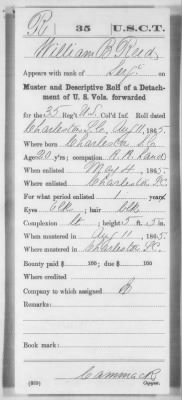 R 35 U.S.C.T.
William B Reed
Appears with rank of Serj
Muster and Descriptive Roll of a Detachment of U. S. Vols. forwarded
for the 35 Reg't U.S. Col'd Inf. Roll dated
Charleston S.C. Aug 11, 1865.
Where born Charleston S.C.
Age 20 y'rs; occupation
When enlisted May 4, 1865.
Where enlisted Charleston SC
For what period enlisted 1 years.
Eyes Blk; hair Blk
Complexion lt; height 5 ft. 5 in.
When mustered in Aug 11, 1865.
Where mustered in Charleston SC.
Bounty paid $ 100; due $ 100
Where credited
Company to which assigned
Remarks:
Book mark:
Cammack
Copyist.